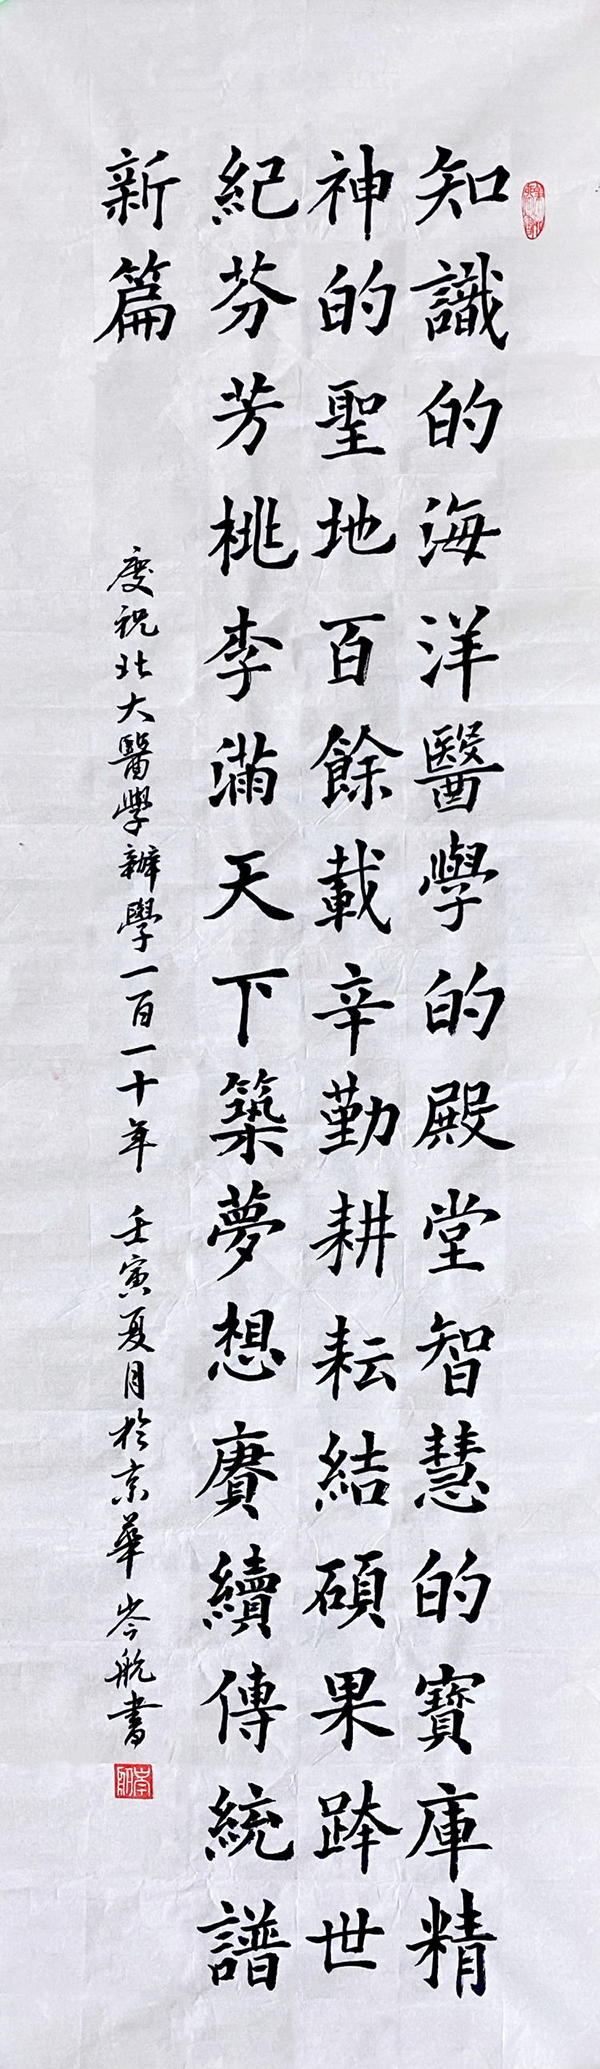 知識的海洋醫學的殿堂智慧的寶庫精
神的聖地百餘載辛勤耕耘結碩果跨世
紀芬芳桃李滿天下築夢想賡續傳統譜
新篇
慶祝北大醫學辦學一百一十年 壬寅夏月於京華 岑航書